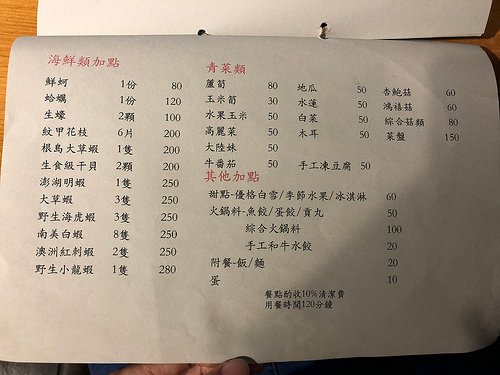 海鮮類加點
鮮蚵 1份 80
蛤蠣 1份 120
生蠔 2顆 100
紋甲花枝 6片 200
根島大草蝦 1隻 200
生食級干貝 2顆 200
澎湖明蝦 1隻 250
大草蝦 3隻 250
野生海虎蝦 3隻 250
南美白蝦 8隻 250
澳洲紅刺蝦 2隻 250
野生小龍蝦 1隻 280
青菜類
蘆筍 80 地瓜 50 杏鮑菇 60
玉米筍 30 水蓮 50 鴻禧菇 60
水果玉米 50 白菜 50 綜合菇類 80
高麗菜 50 木耳 50 菜盤 150
大陸妹 50
牛番茄 50 手工凍豆腐 50
其他加點
甜點-優格白雪/季節水果/冰淇淋 60
火鍋料-魚餃/蛋餃/貢丸 50
綜合火鍋料 100
手工和牛水餃 20
附餐-飯/麵 20
蛋 10
餐點酌收10%清潔費
用餐時間120分鐘